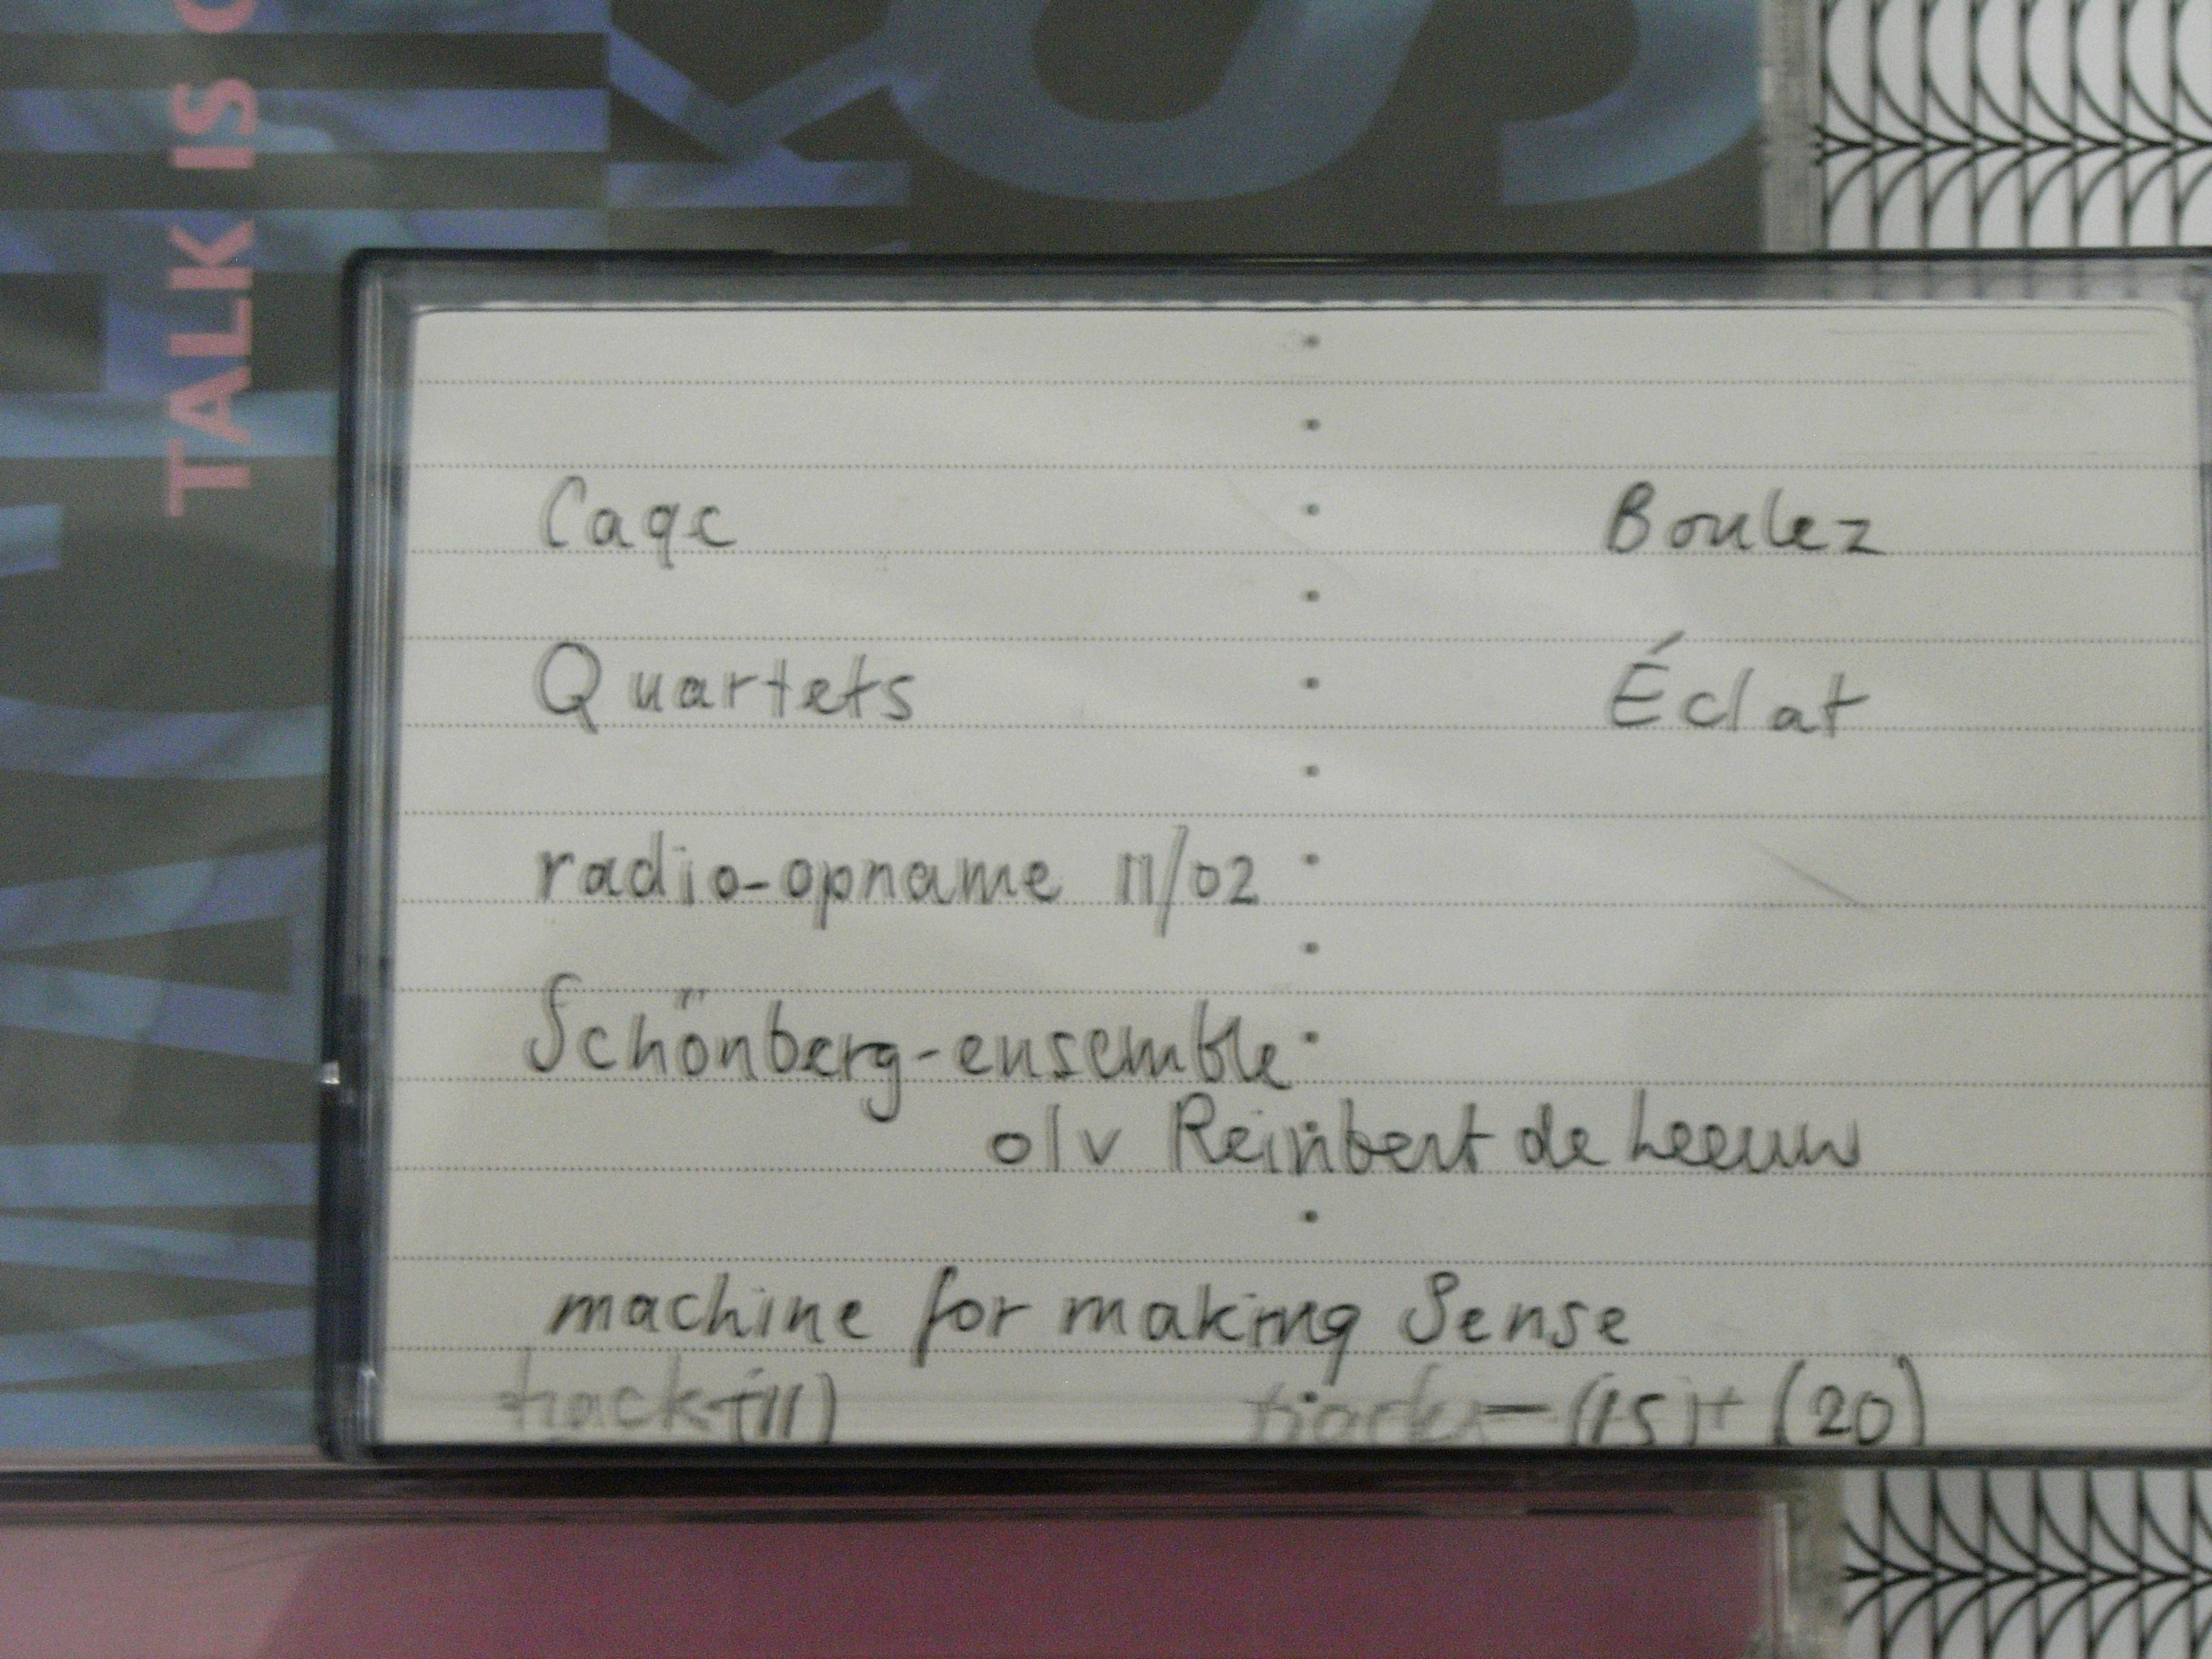 TALK IS
Cage Boulez
Quartets Éclat
radio-opname 11/02
Schönberg-ensemble
olv Reinbert de Leeuw
machine for making Sense
track (11) tracks - (15) + (20)